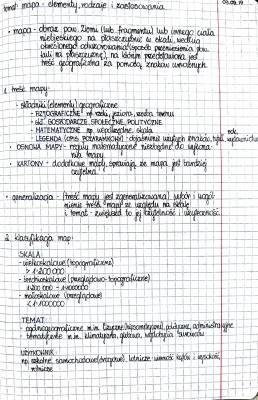 temat: mapa - elementy, rodzaje i zastosowania.
03.09.19
• mapa - obraz pow. Ziemi (lub fragmentu) lub innego ciała
niebieskiego na płaszczyźnie w skali, według
określonego odwzorowania (sposób przeniesienia pow.
kuli na płaszczyznę), na którym przedstawiona jest
treść geograficzna za pomocą znaków umownych.
1. treść mapy:
- składniki (elementy) geograficzne
• FIZYCZNOGEOGRAFICZNE np. rzeki, jeziora, rzeźba terenu
• GOSPODARCZE, SPOŁECZNE, POLITYCZNE
• MATEMATYCZNE np. współrzędne, skala
• LEGENDA (OPIS POZARAMKOWY) - objaśnienie użytych znaków, tytuł, wydawnictwo
• OSNOWA MAPY - reguły matematyczne niezbędne do
mapy
• KARTONY - dodatkowe mapy, sprawiają, że mapa jest bardziej
czytelna.
• generalizacja - (treść mapy jest zgeneralizowana) wybór i uogól-
nienie treści mapy ze względu na skalę
i temat - zwiększa to jej czytelność i użyteczność.
2. klasyfikacja map:
SKALA:
- wielkoskalowe (topograficzne)
> 1:200 000
- średnioskalowe (przeglądowo-topograficzne)
1:200 000 - 1:1000000
- małoskalowe (przeglądowe)
< 1:1000000
TEMAT:
- ogólnogeograficzne m.in.
- tematyczne m.in. klimatyczna, glebowa,
UŻYTKOWNIK:
np. szkolne, samochodowe (drogowe), lotnicze